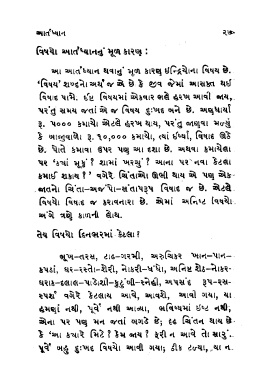 આર્તધ્યાન
૨૭
વિષયો આર્તધ્યાનનું મૂળ કારણ :
આ આર્તધ્યાન થવાનું મૂળ કારણ ઇન્દ્રિયોના વિષય છે.
'વિષય' શબ્દનો અર્થ જ એ છે કે જીવ જેમાં આસક્ત થઈ
વિષાદ પામે. ઈષ્ટ વિષયમાં એકવાર ભલે હરખ આવી જાય,
પરંતુ સમય જતાં એ જ વિષય દુઃખદ બને છે. અણધાર્યા
રૂ. ૫૦૦૦ કમાયો એટલે હરખ થાય, પરંતુ જાણવા મળ્યું
કે બાજુવાળો રૂ. ૧૦,૦૦૦ કમાયો, ત્યાં ઈર્ષ્યા, વિષાદ ઊઠે
છે. પોતે કમાવા ઉપર પણ આ દશા છે. અથવા કમાયેલા
પર 'ક્યાં મૂકું ? શામાં ખરચું ? આના પર નવા કેટલા
કમાઈ શકાય ?' વગેરે ચિંતાઓ ઊભી થાય એ પણ એક
જાતનો ચિંતા-અજંપો-સંતાપરૂપ વિષાદ જ છે. એટલે
વિષયો વિષાદ જ કરાવનારા છે. એમાં અનિષ્ટ વિષયો
અંગે વળે કાળની લાય.
તેય વિષયો દિનભરમાં કેટલા ?
ભૂખ-તરસ, ટાઢ-ગરમી, અરુચિકર ખાન-પાન-
કપડાં, ઘર-રસ્તો-શેરી, નોકરી-ધંધો, અનિષ્ટ શેઠ-નોકર-
ઘરાક-દલાલ-પાડોશી-કુટુંબી-સ્નેહી, અપસંદ રૂપ-રસ-
સ્પર્શ વગેરે કેટલાય આવે, આવશે, આવી ગયા, યા
હમણાં નથી, પૂર્વે નથી આવ્યા, ભવિષ્યમાં ઇષ્ટ નથી;
એના પર પણ મન જતાં બગડે છે; દૃઢ ચિંતન થાય છે
કે 'આ ક્યારે મિટે ? કેમ જાય ? ફરી ન આવે તો સારું'.
પૂર્વે બહુ દુઃખદ વિષયો આવી ગયા; ઠીક ટળ્યા, યા ન